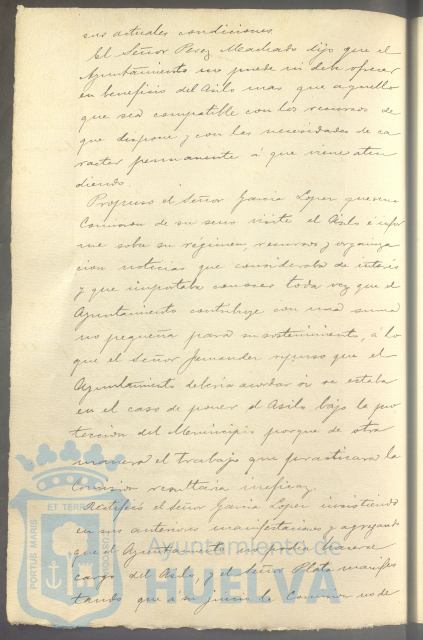 sus actuales condiciones.
El Señor Perez Machado dijo que el
Ayuntamiento no puede ni debe ofrecer
en beneficio del Asilo mas que aquello
que sea compatible con los recursos de
que dispone y con las necesidades de ca
racter permanente, á que viene aten
diendo.
Propuso el Señor Garcia Lopez que una
Comision de su seno visite el Asilo é infor
me sobre su régimen, recursos y organiza
cion noticias que consideraba de interés
y que importaba conocer toda vez que el
Ayuntamiento contribuye con una suma
no pequeña para su sostenimiento, á lo
que el Señor Fernandez repuso que el
Ayuntamiento debería acordar si se estaba
en el caso de poner el Asilo bajo la pro
teccion del Municipio porque de otra
manera el trabajo que practicara la
Comision resultaria ineficaz.
Rectificó el Señor Garcia Lopez insistiendo
en sus anteriores manifestaciones y agregando
que el Ayuntamiento no podia hacerse
cargo del Asilo, y el Señor Plata manifes
tando que á su juicio la Comision no de
PORTUS MARIS ET TERRAE
Ayuntamiento de
HUELVA